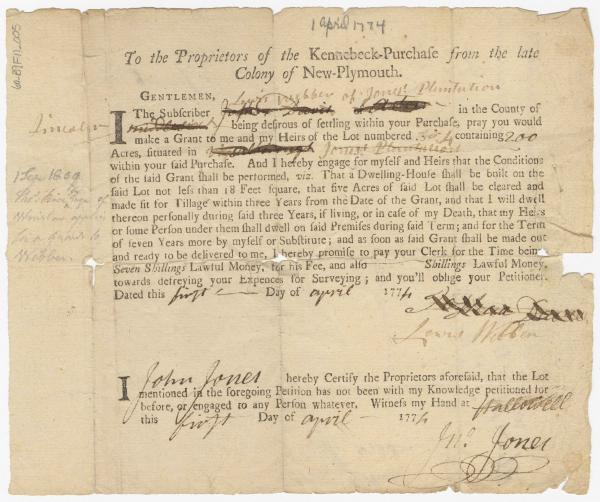 1 april 1774
To the Proprietors of the Kennebeck-Purchase from the late
Colony of New-Plymouth.
GENTLEMEN, Lewis Webber of Jones's Plantation
The Subscriber in the County of
Lincoln being desirous of settling within your Purchase, pray you would
make a Grant to me and my Heirs of the Lot numbered containing 200
Acres, situated in Jones's Plantation
within your said Purchase. And I hereby engage for myself and Heirs that the Conditions
of the said Grant shall be performed, viz. That a Dwelling-House shall be built on the
said Lot not less than 18 Feet square, that five Acres of said Lot shall be cleared and
made fit for Tillage within three Years from the Date of the Grant, and that I will dwell
thereon personally during said three Years, if living, or in case of my Death, that my Heirs
or some Person under them shall dwell on said Premises during said Term; and for the Term
of seven Years more by myself or Substitute; and as soon as said Grant shall be made out
and ready to be delivered to me, I hereby promise to pay your Clerk for the Time being
Seven Shillings Lawful Money, for his Fee, and also Shillings Lawful Money,
towards defreying your Expences for Surveying; and you'll oblige your Petitioner.
Dated this first Day of april 1774
Lewis Webber
I John Jones hereby Certify the Proprietors aforesaid, that the Lot
mentioned in the foregoing Petition has not been with my Knowledge petitioned for
before, or engaged to any Person whatever. Witness my Hand at Hallowell
this first Day of april 1774
Jno. Jones